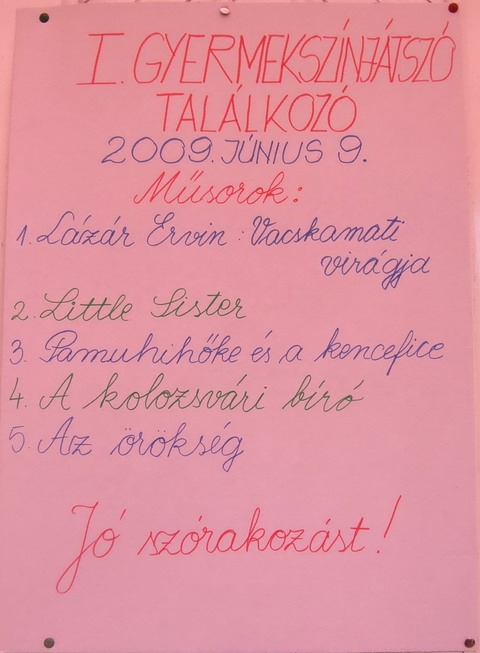 I. GYERMEKSZÍNJÁTSZÓ
TALÁLKOZÓ
2009. JÚNIUS 9.
Műsorok:
1. Lázár Ervin: Vacskamati
virágja
2. Little Sister
3. Pamuhihőke és a kencefice
4. A kolozsvári bíró
5. Az örökség
Jó szórakozást!